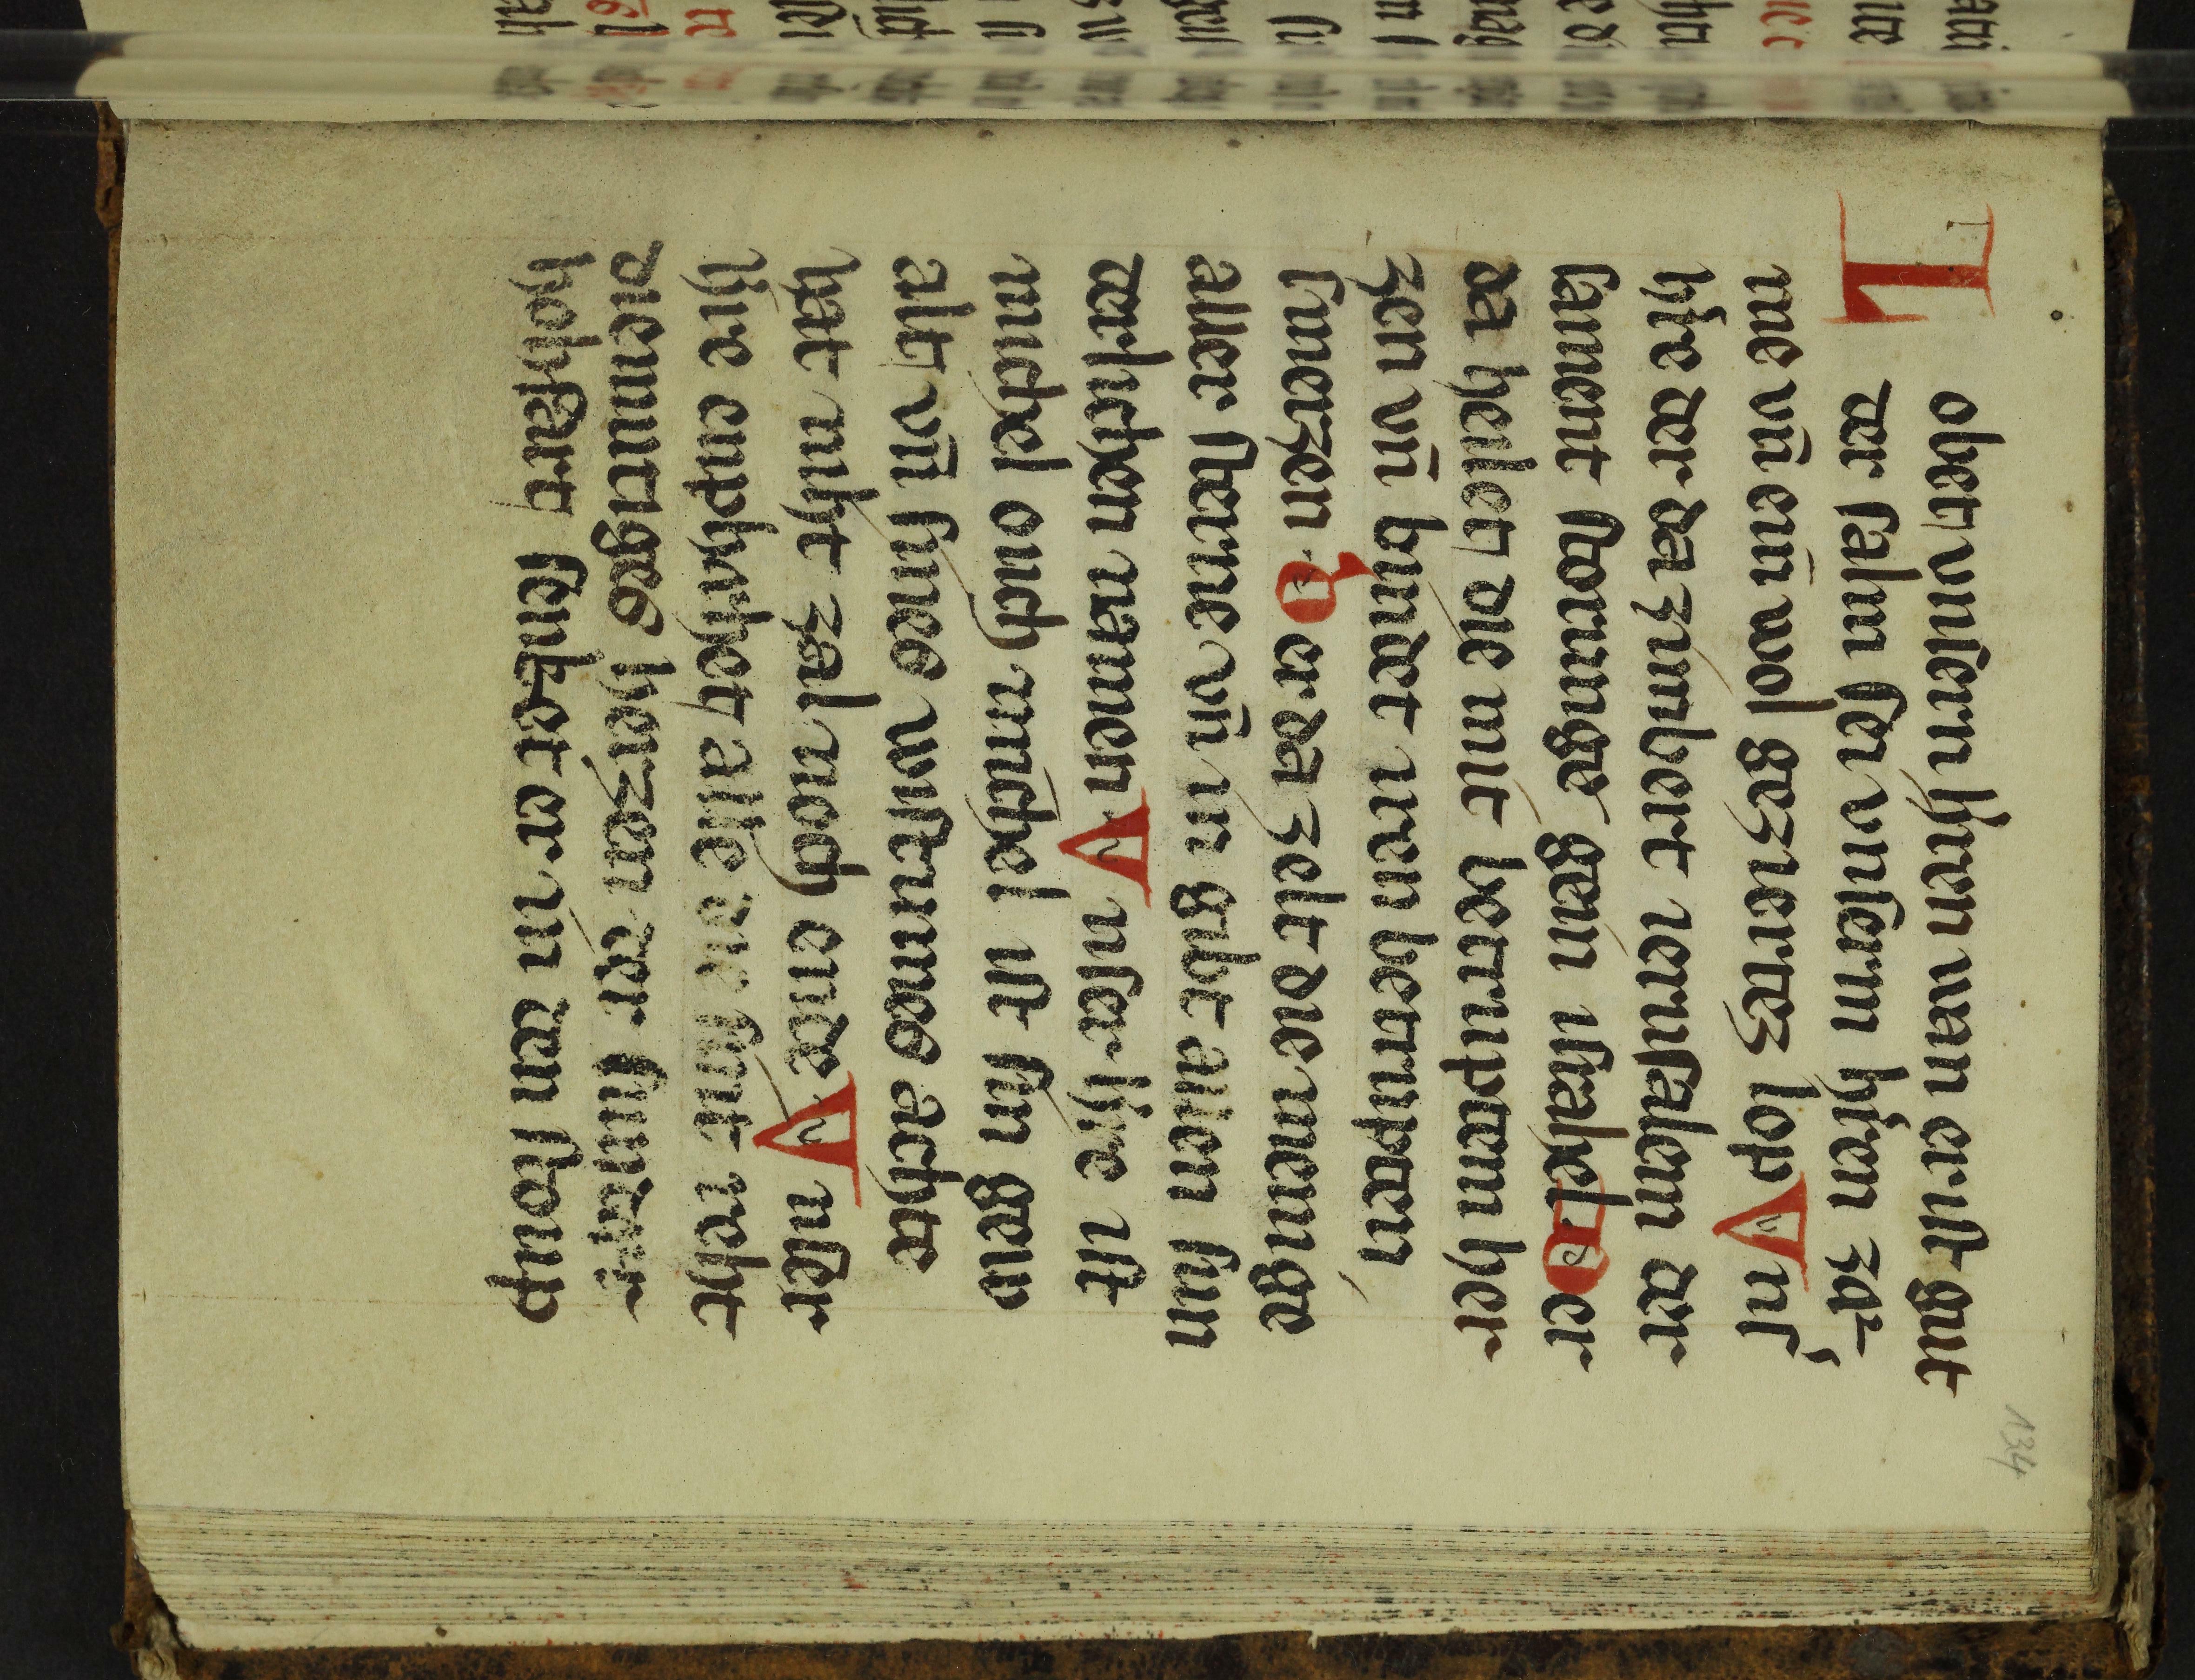 Lobet vnsern hren wan er ist gut
der salm sei vnserm hren zā
me vn̄ ein wol gezierttez lop Vns'
hre der da zimbert ierusalem der
sament storunge gein israhel. Der
da heilet die mit betrupten her
zen vn̄ bindet iren betrupten
smerzen. Der da zelt die menige
aller sterne vn̄ in gibt allen sun
derlichen nemanen Vnser hre ist
michel ouch michel ist sin gew
alt vn̄ sines wistumes achte
hat niht zal noch ende Vnser
hre enphahet alle die sint reht
diemutiges herzen der sunder
hohfart senket er in den stoup
134